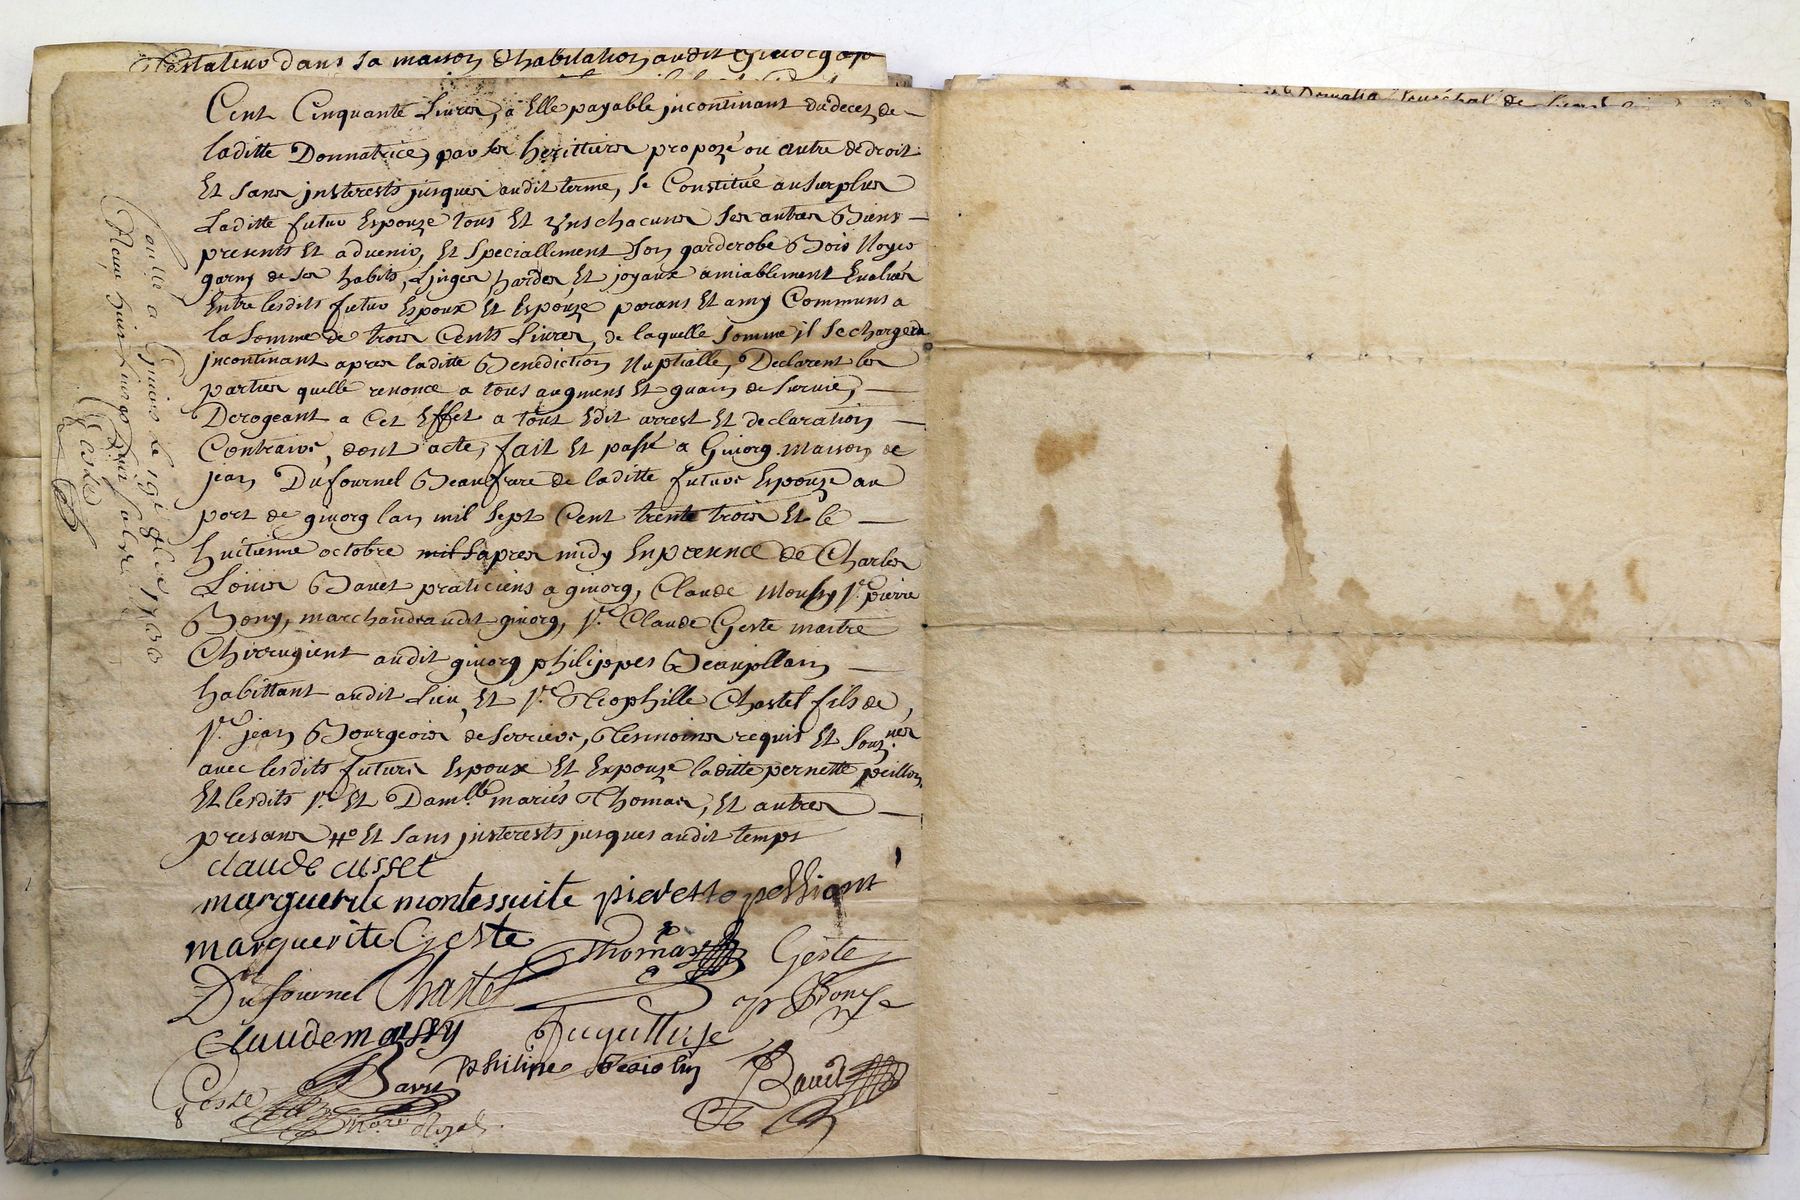 dans sa maison d'habitation audit Givors
Cent Cinquante Livres, a Elle payable incontinant du decez de
laditte Donnatrice, par ses herittiers propozé ou autre de droit
Et sans insterests jusques audit terme, se Constitue au surplus
Laditte futur Espouze tous Et uns chacuns ses autres Biens
presents Et advenir, Et speciallement son garderobe Bois Noyer
garny de ses habits, Linges hardes, Et joyaux amiablement Evalués
Entre lesdits futur Espoux Et Espouze parans Et amy Communs a
la somme de trois Cents Livres, de laquelle somme il se chargera
incontinant apres laditte Benediction Nuptialle, Declarent les
parties quelle renonce a tous augmens Et guain de survie,
Derogeant a Cet Effet a tout Edit arrest Et declaration
Contraire, dont acte, fait Et passé a Givors maison de
jean Dufournel Beaufrere de laditte future Espouze au
port de givors lan mil sept Cent trente trois Et le
huitieme octobre apres midy En presence de Charles
Louis Bavet praticiens a givors, Claude Moussy Sr. pierre
Bony, marchands audit givors, Sr. Claude Geste maitre
Chirrugient audit givors philippes Beaujollain
habittant audit Lieu, Et Sr. Theophille Chastel fils de
Sr. jean Bourgeois de Serriere, Tesmoins requis Et souz.nés
avec lesdits futurs Espoux Et Expouze laditte pernette peillon
Et lesdits Sr. Et Dam.lle mariés Thomas, Et autres
presans Et sans insterests jusques audit temps
claude cusset
marguerite montessuite pierette pelliont
marguerite Geste Thomas Geste
Dufournel Chastel Bony
Claude moussy
philipe Bavet
Geste
Not.re Royal
Controllé a Givors le 19e 8bre 1733